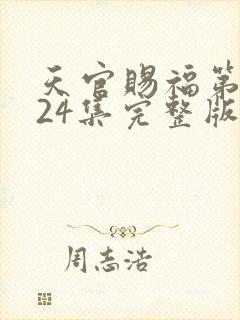 天官赐福第
24集完整版
周志浩